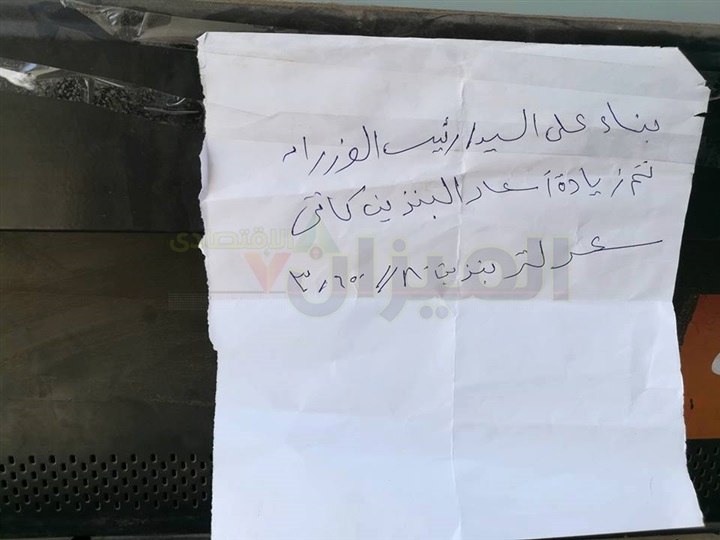 بناء على السيد/ رئيس الوزراء
تم زيادة أسعار البنزين كاتى
سعر لتر بنزين ٨٠ // ٣,٦٥٠
الميزان
الاقتصادى